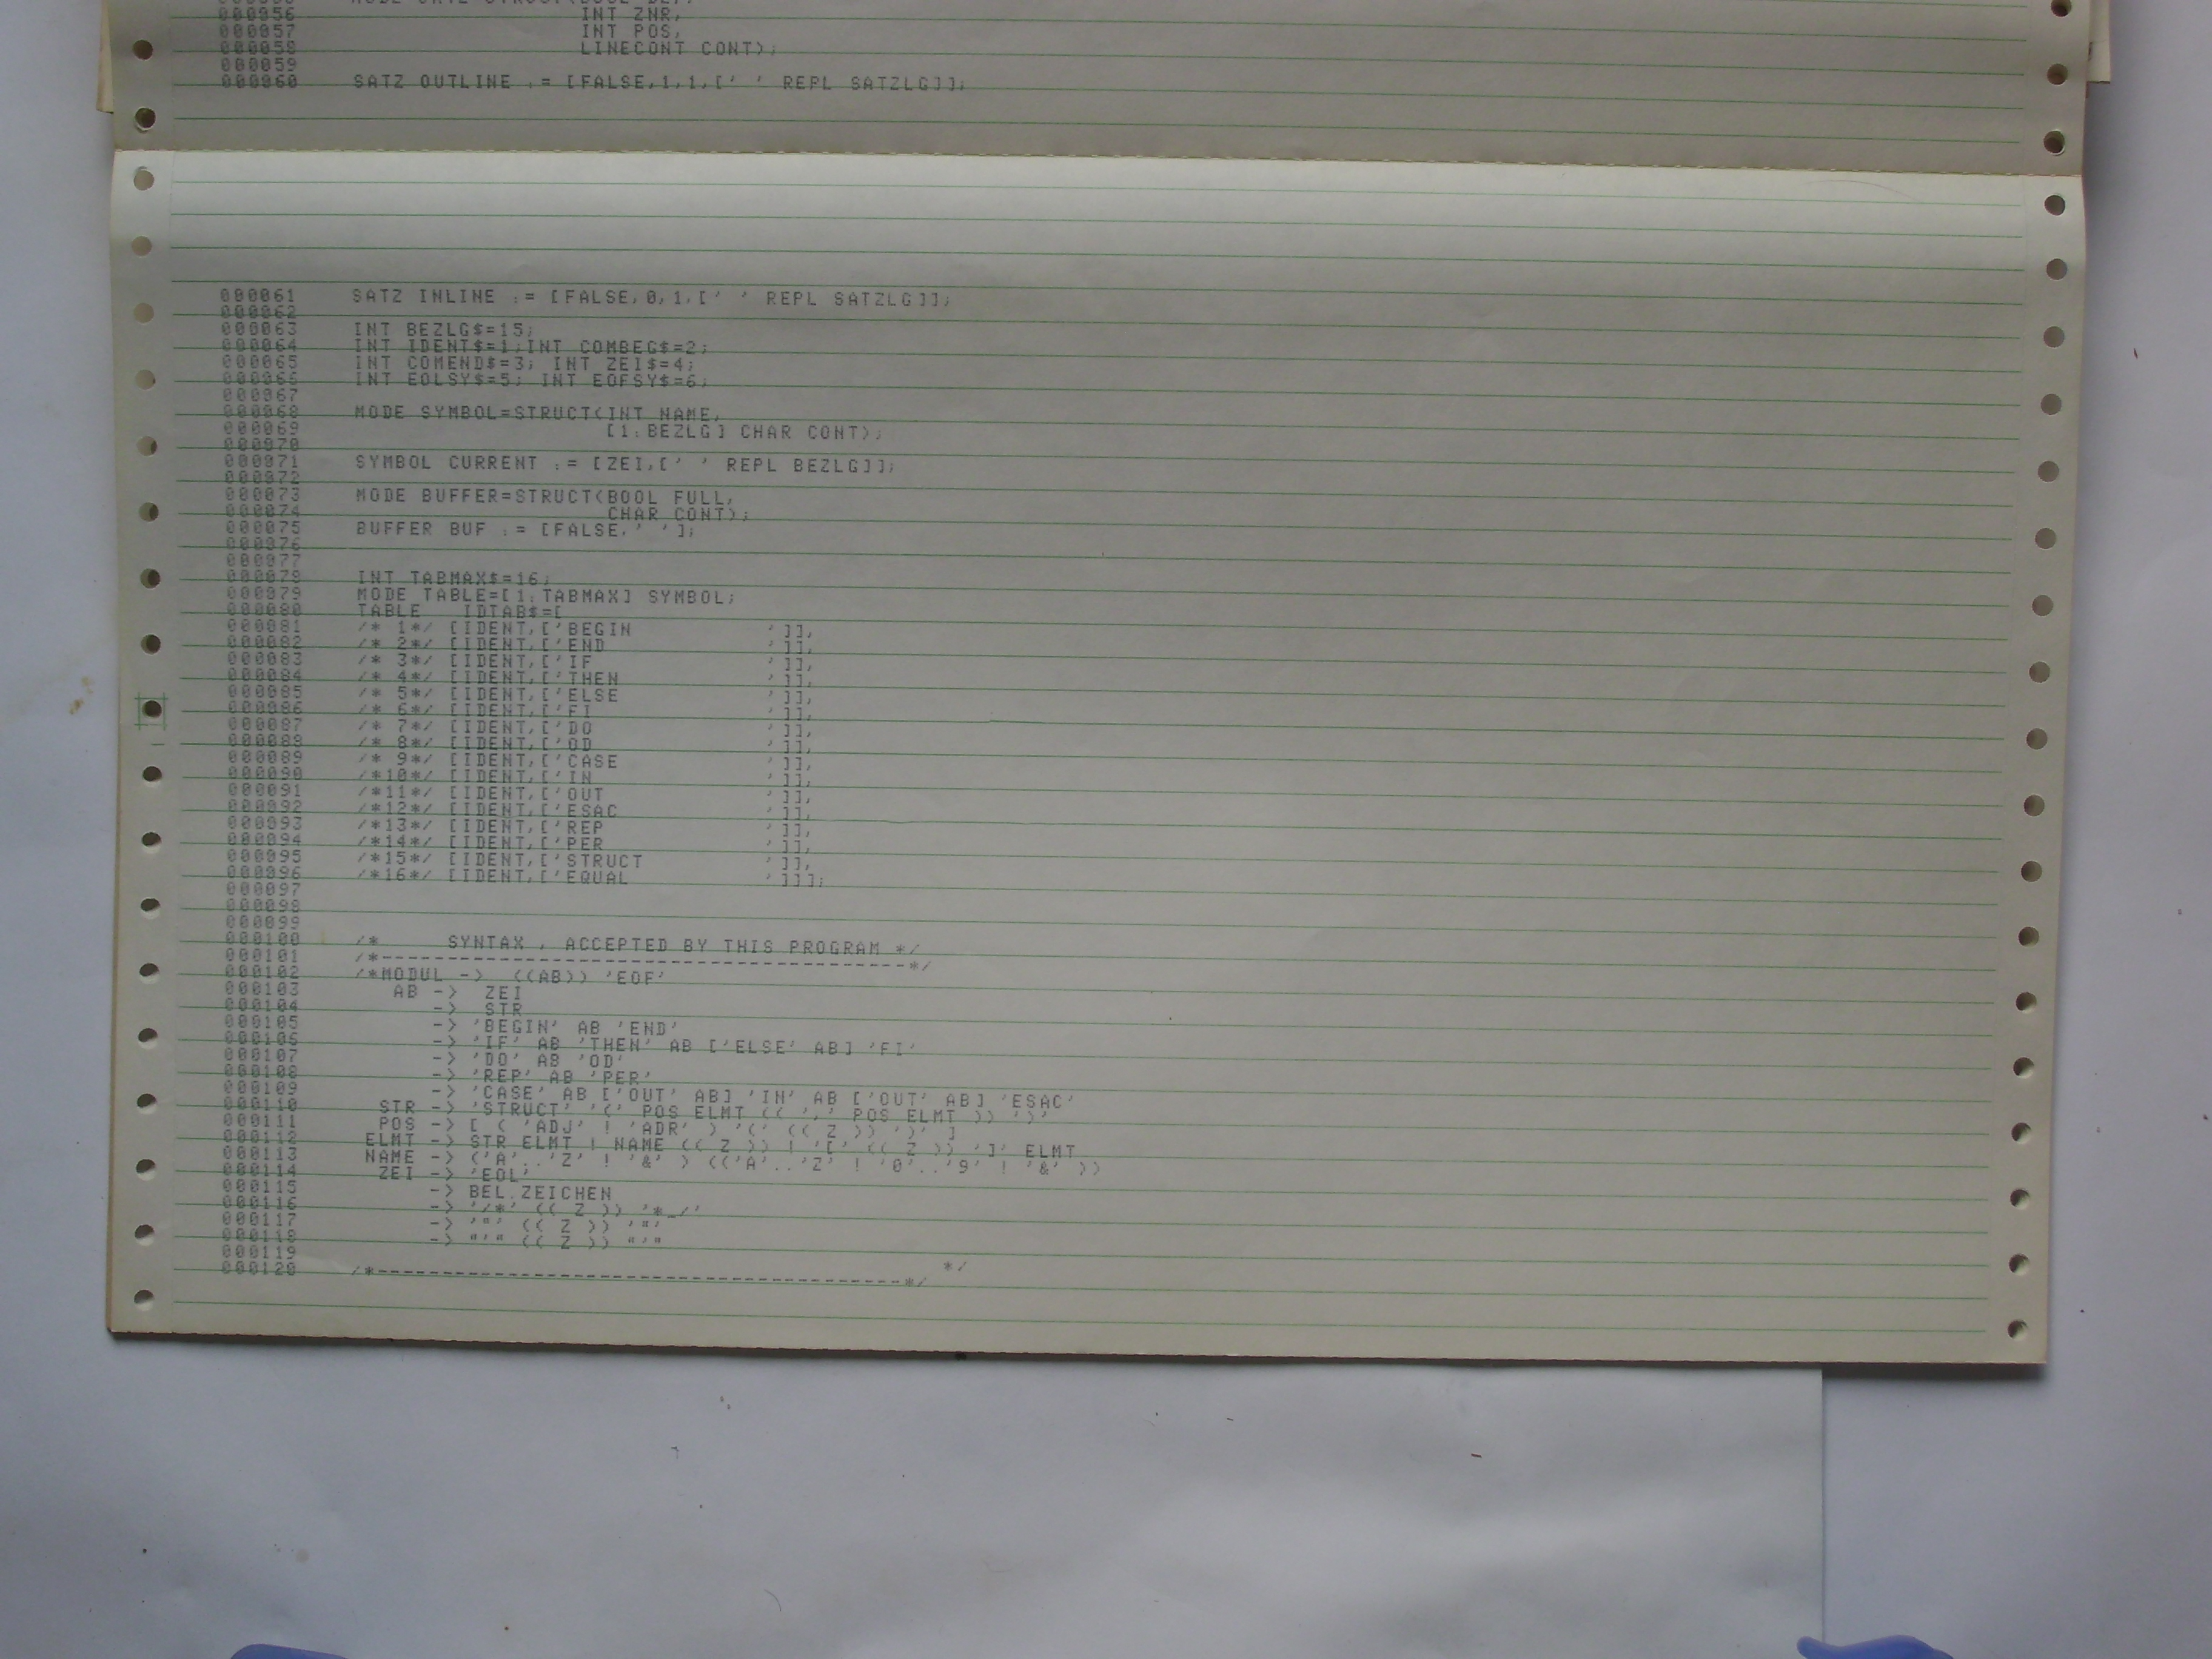 000056                      INT ZNR,
000057                      INT POS,
000058                      LINECONT CONT);
000059
000060     SATZ OUTLINE := [FALSE,1,1,[' ' REPL SATZLG]];
000061     SATZ INLINE := [FALSE,0,1,[' ' REPL SATZLG]];
000062
000063     INT BEZLG$=15;
000064     INT IDENT$=1;INT COMBEG$=2;
000065     INT COMEND$=3; INT ZEI$=4;
000066     INT EOLSY$=5; INT EOFSY$=6;
000067
000068     MODE SYMBOL=STRUCT(INT NAME,
000069                        [1:BEZLG] CHAR CONT);
000070
000071     SYMBOL CURRENT := [ZEI,[' ' REPL BEZLG]];
000072
000073     MODE BUFFER=STRUCT(BOOL FULL,
000074                        CHAR CONT);
000075     BUFFER BUF := [FALSE,' '];
000076
000077
000078     INT TABMAX$=16;
000079     MODE TABLE=[1:TABMAX] SYMBOL;
000080     TABLE   IDTAB$=[
000081     /* 1*/ [IDENT,['BEGIN          ']],
000082     /* 2*/ [IDENT,['END            ']],
000083     /* 3*/ [IDENT,['IF             ']],
000084     /* 4*/ [IDENT,['THEN           ']],
000085     /* 5*/ [IDENT,['ELSE           ']],
000086     /* 6*/ [IDENT,['FI             ']],
000087     /* 7*/ [IDENT,['DO             ']],
000088     /* 8*/ [IDENT,['OD             ']],
000089     /* 9*/ [IDENT,['CASE           ']],
000090     /*10*/ [IDENT,['IN             ']],
000091     /*11*/ [IDENT,['OUT            ']],
000092     /*12*/ [IDENT,['ESAC           ']],
000093     /*13*/ [IDENT,['REP            ']],
000094     /*14*/ [IDENT,['PER            ']],
000095     /*15*/ [IDENT,['STRUCT         ']],
000096     /*16*/ [IDENT,['EQUAL          ']]];
000097
000098
000099
000100     /*     SYNTAX , ACCEPTED BY THIS PROGRAM */
000101     /*----------------------------------------*/
000102     /*MODUL ->  ((AB)) 'EOF'
000103        AB ->  ZEI
000104           ->  STR
000105           -> 'BEGIN' AB 'END'
000106           -> 'IF' AB 'THEN' AB ['ELSE' AB] 'FI'
000107           -> 'DO' AB 'OD'
000108           -> 'REP' AB 'PER'
000109           -> 'CASE' AB ['OUT' AB] 'IN' AB ['OUT' AB] 'ESAC'
000110       STR -> 'STRUCT' '(' POS ELMT (( ',' POS ELMT )) ')'
000111       POS -> [ ( 'ADJ' ! 'ADR' ) '(' (( Z )) ')' ]
000112      ELMT -> STR ELMT ! NAME (( Z )) ! '[' (( Z )) ']' ELMT
000113      NAME -> ('A'..'Z' ! '&' ) (('A'..'Z' ! '0'..'9' ! '&' ))
000114       ZEI -> 'EOL'
000115           -> BEL.ZEICHEN
000116           -> '/*' (( Z )) '*_/'
000117           -> '"' (( Z )) '"'
000118           -> "'" (( Z )) "'"
000119                                             */
000120     /*----------------------------------------*/